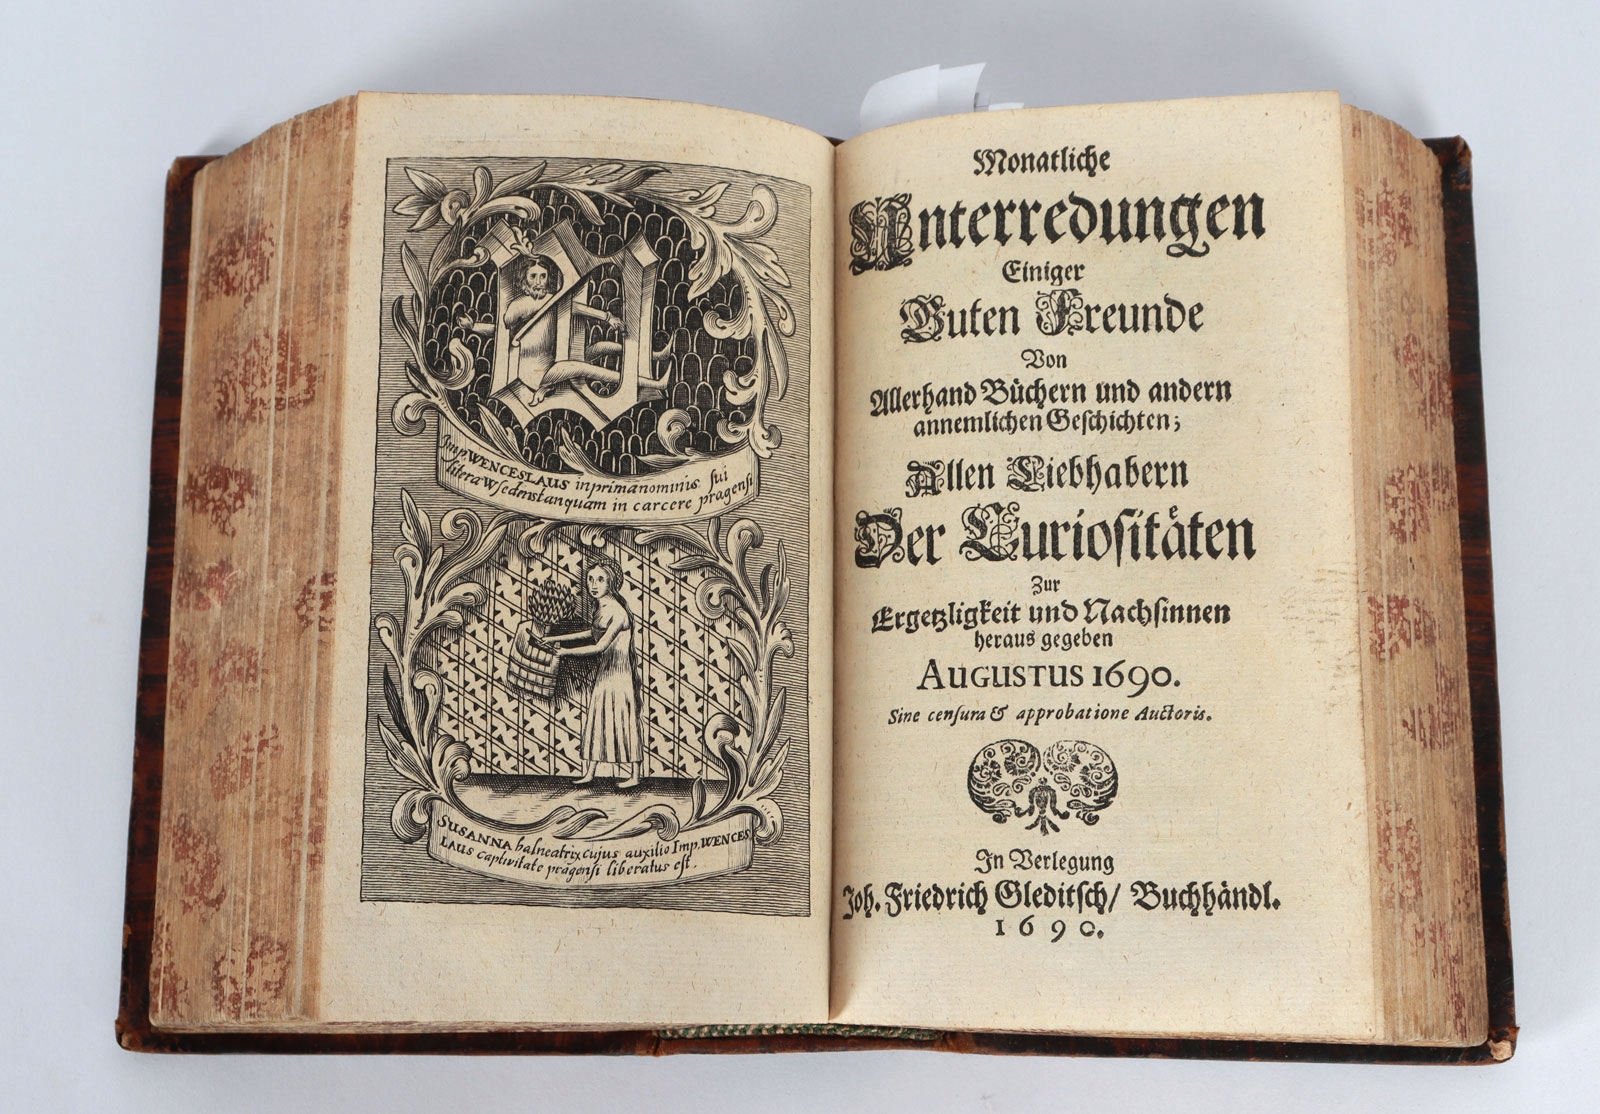 Imp. WENCESLAUS in prima nominis sui
litera W sedens tanquam in carcere pragensi
SUSANNA balneatrix cujus auxilio Imp. WENCES
LAUS captivitate pragensi liberatus est.
Monatliche
Unterredungen
Einiger
Guten Freunde
Von
Allerhand Büchern und andern
annemlichen Geschichten;
Allen Liebhabern
Der Curiositäten
Zur
Ergetzligkeit und Nachsinnen
heraus gegeben
AUGUSTUS 1690.
Sine censura & approbatione Auctoris.
In Verlegung
Joh. Friedrich Gleditsch/ Buchhändl.
1690.